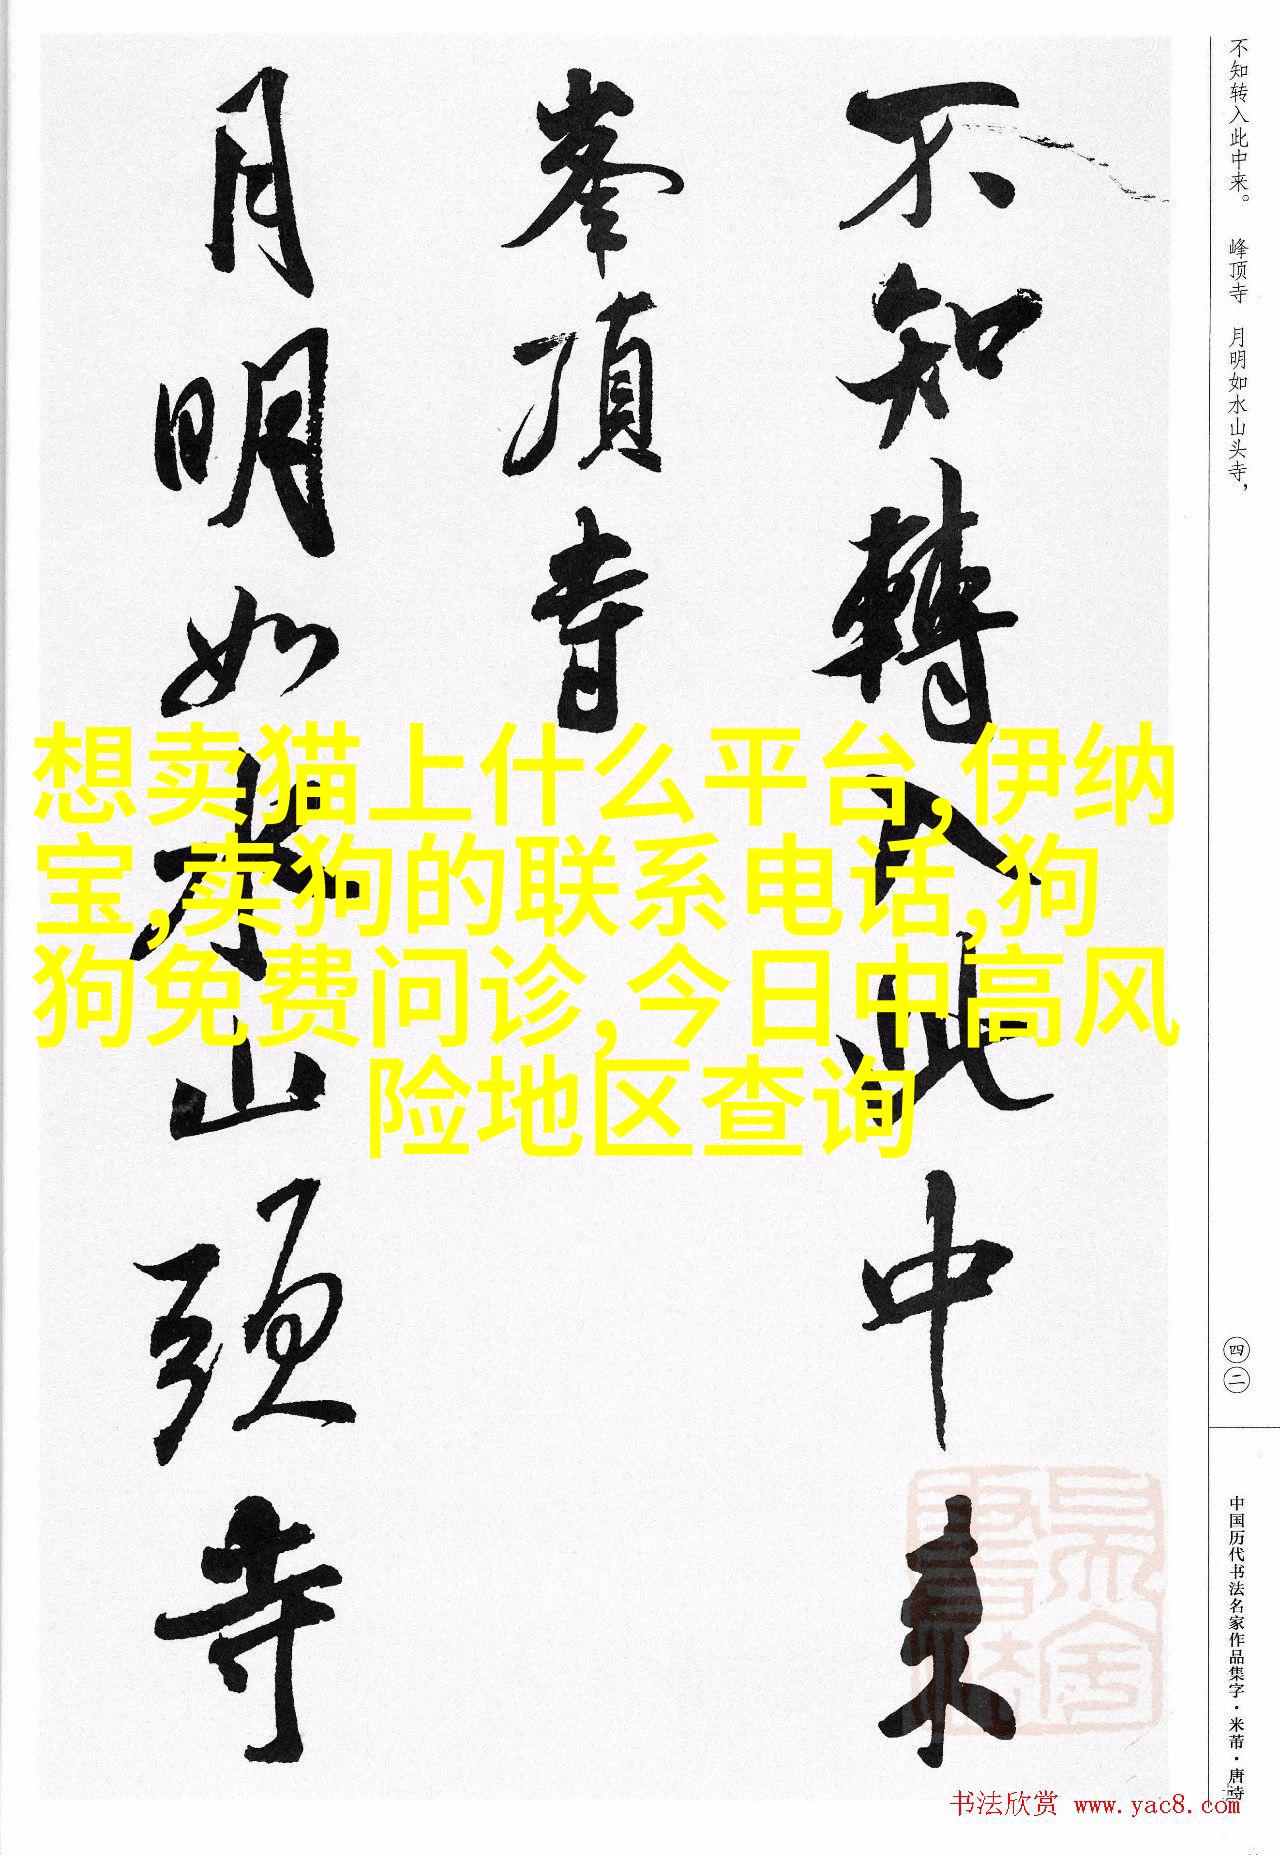 不知转入此中来。 峰顶寺 月明如水山头寺，
不知轉入此中来
峯頂寺
月明如水山頭寺
想卖猫上什么平台,伊纳
宝,卖狗的联系电话,狗
狗免费问诊,今日中高风
险地区查询
四二
中国历代书法名家作品集字·米芾·唐诗
书法欣赏 www.yac8.com